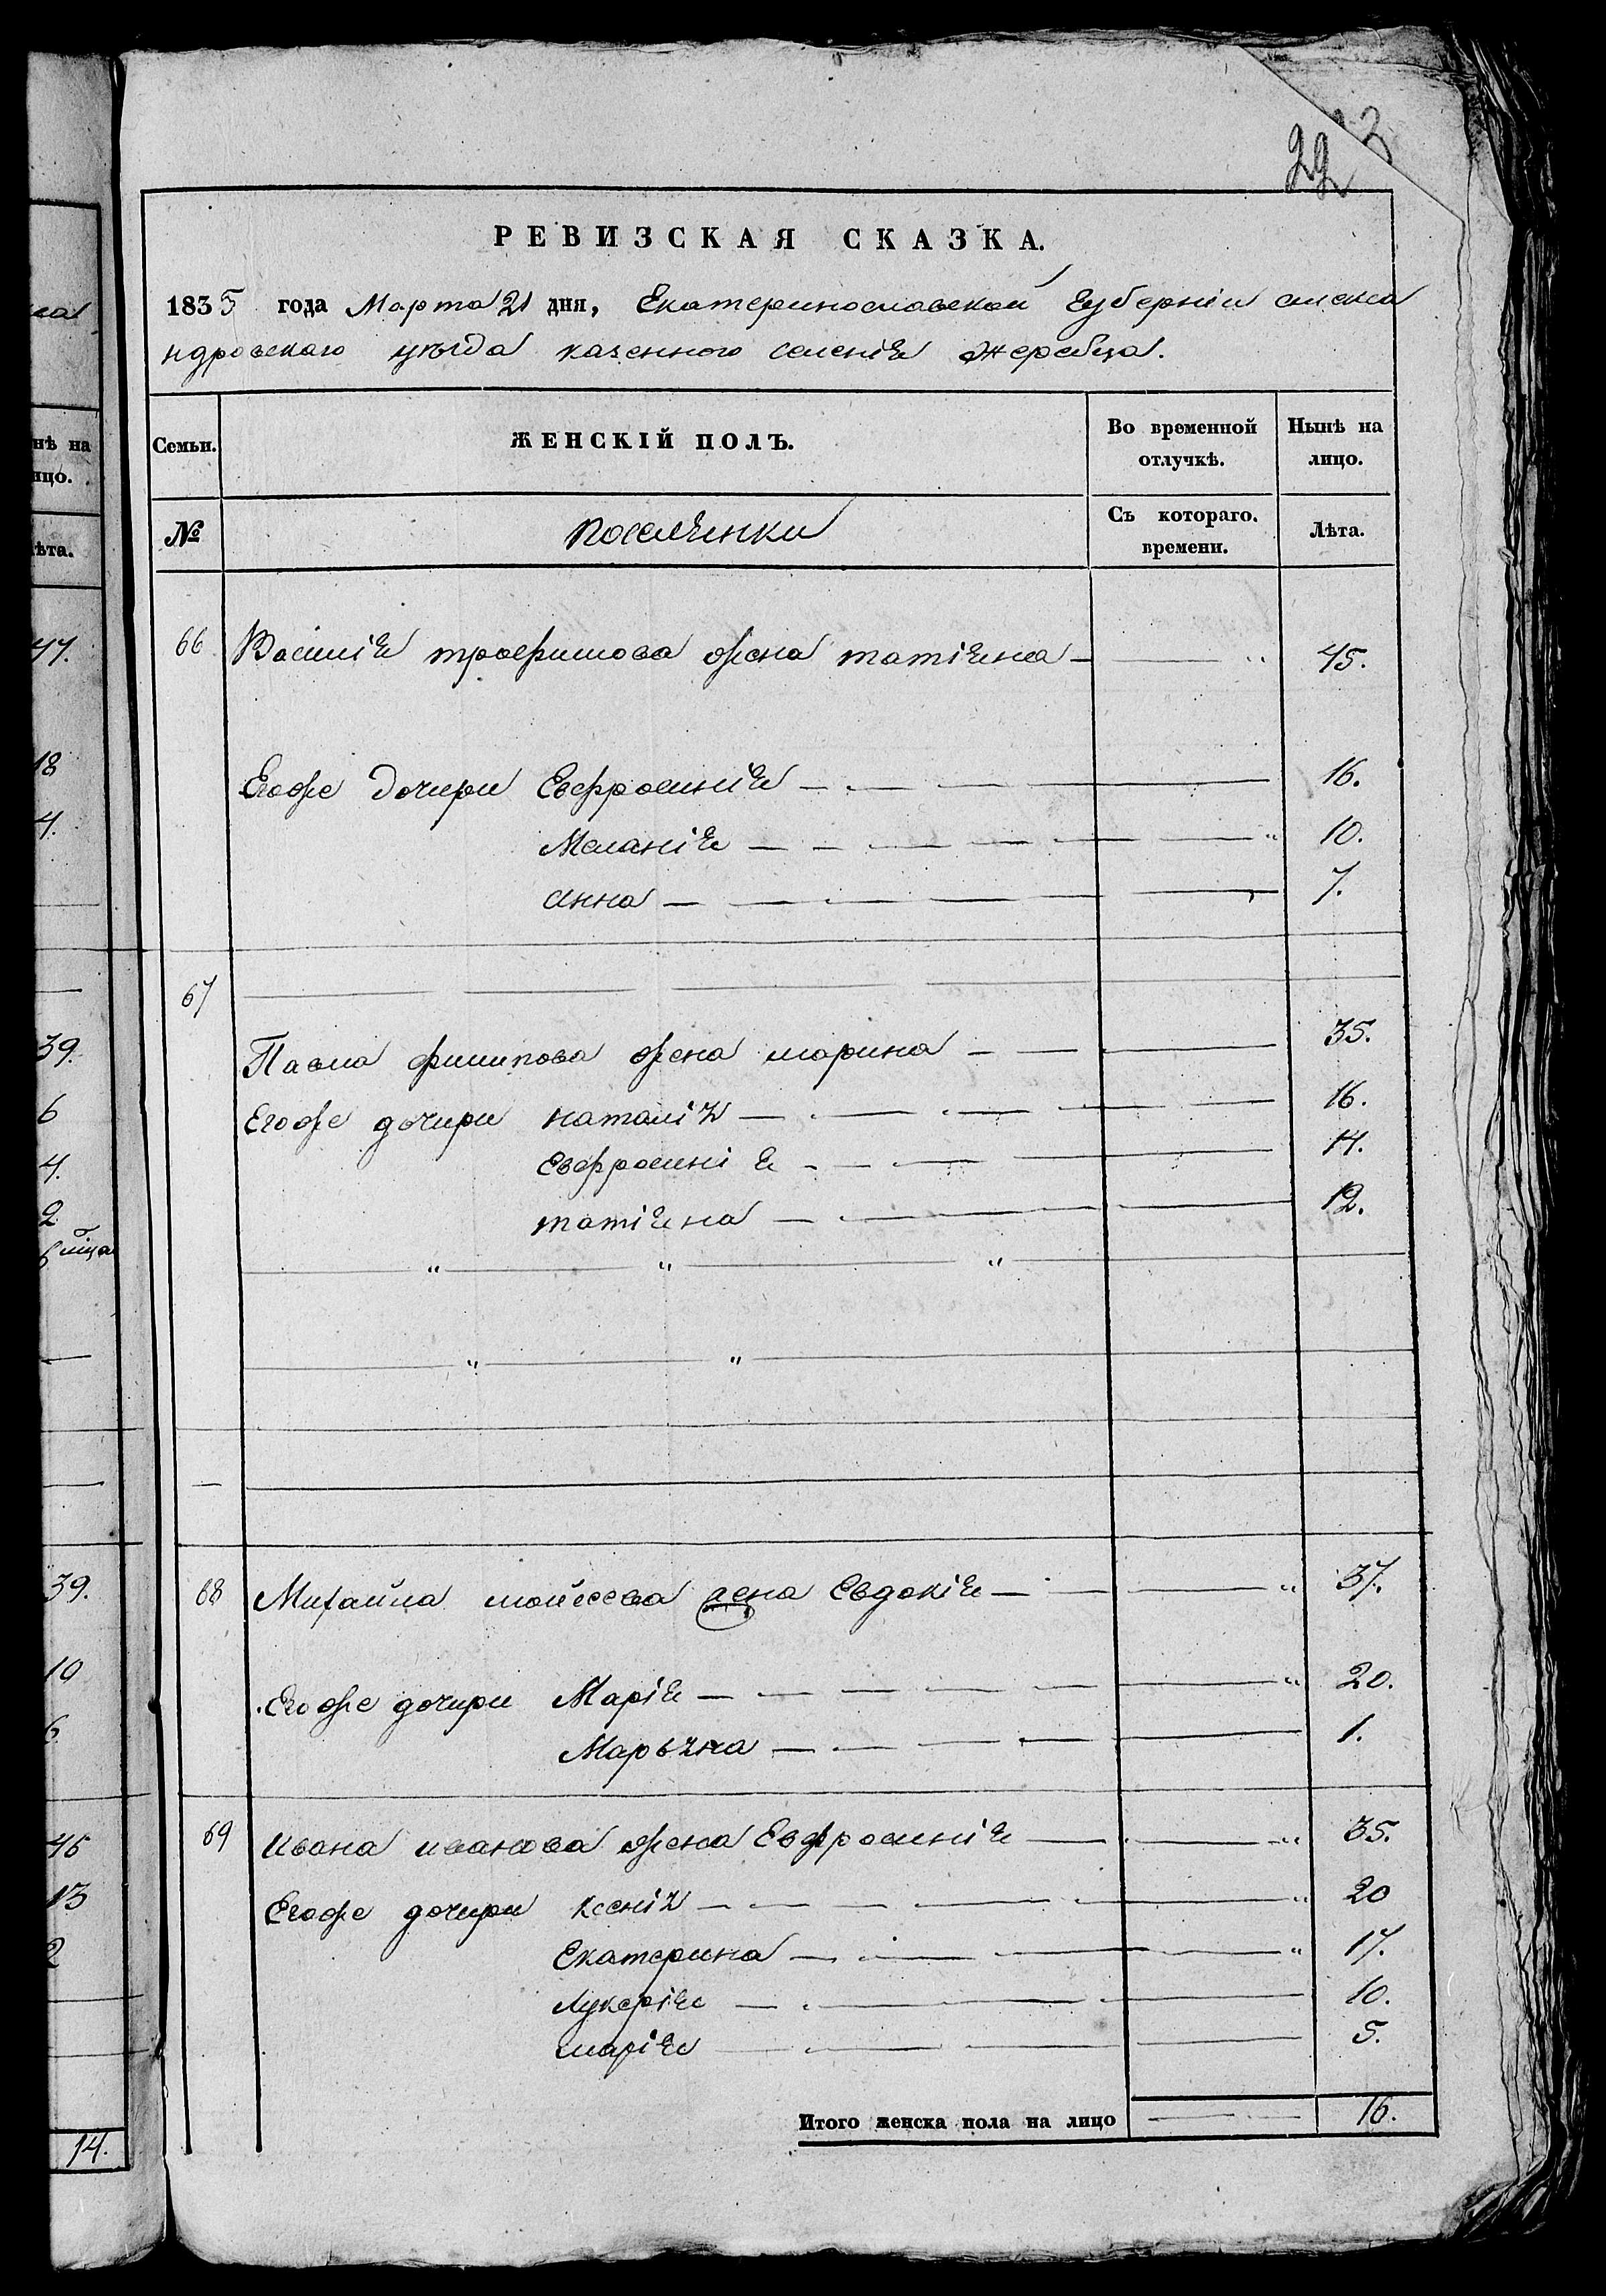 22
РЕВИЗСКАЯ СКАЗКА.
1835 года Марта 21 дня, Екатеринославской Губерніи алекса
ндровскаго уезда казенного селенія жеребца.
Семьи. ЖЕНСКІЙ ПОЛЪ. Во временной отлучкѣ. Нынѣ на лицо.
№ поселянки Съ котораго. времени. Лѣта.
66 Василія трофимова жена татіяна 45.
Егоже дочери Евфросинія 16.
Меланія 10.
анна 7.
67
Павла филипова жена марина 35.
Егоже дочери наталія 16.
евфросинія 14.
татіяна 12.
68 Михайла мойсеева жена Евдокія 37.
Егоже дочери Марія 20.
Марьяна 1.
69 ивана иванова жена Евфросинія 35.
Егоже дочери ксенія 20
Екатерина 17.
Лукерія 10.
марія 5.
Итого женска пола на лицо 16.
нѣ на
ицо.
ѣта.
47.
18
4.
39.
6
4.
2
39.
10
6
45
13
2
14.